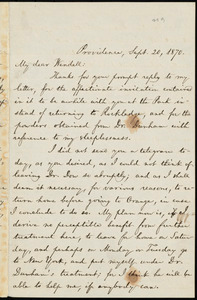 Providence, Sept. 20, 1870.
My dear Wendell:
Thanks for your prompt reply to my
letter, for the affectionate invitation contained
in it to be awhile with you at the Park in-
stead of returning to Rockledge, and for the
powders obtained from Dr. Dunham with
reference to my sleeplessness.
I did not send you a telegram to-
day, as you desired, as I could not think of
leaving Dr. Dow so abruptly, and as I shall
deem it necessary, for various reasons, to re-
turn home before going to Orange, in case
I conclude to do so. My plan now is, if I
derive no perceptible benefit from further
treatment here, to leave for home on Satur-
day, and perhaps on Monday or Tuesday go
to New York, and put myself under Dr.
Dunham's treatment, for I think he will be
able to help me, if anybody can.